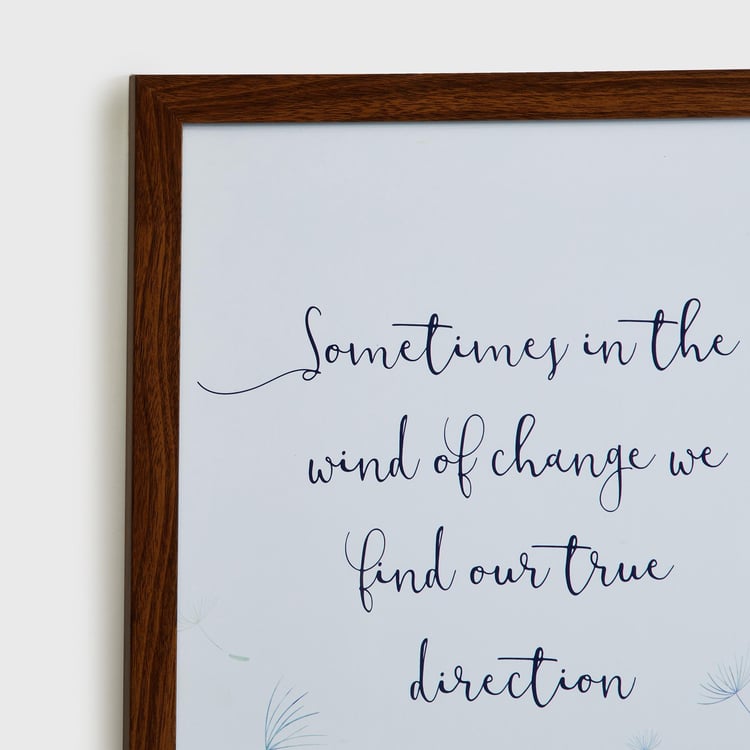 Sometimes in the
wind of change we
find our true
direction